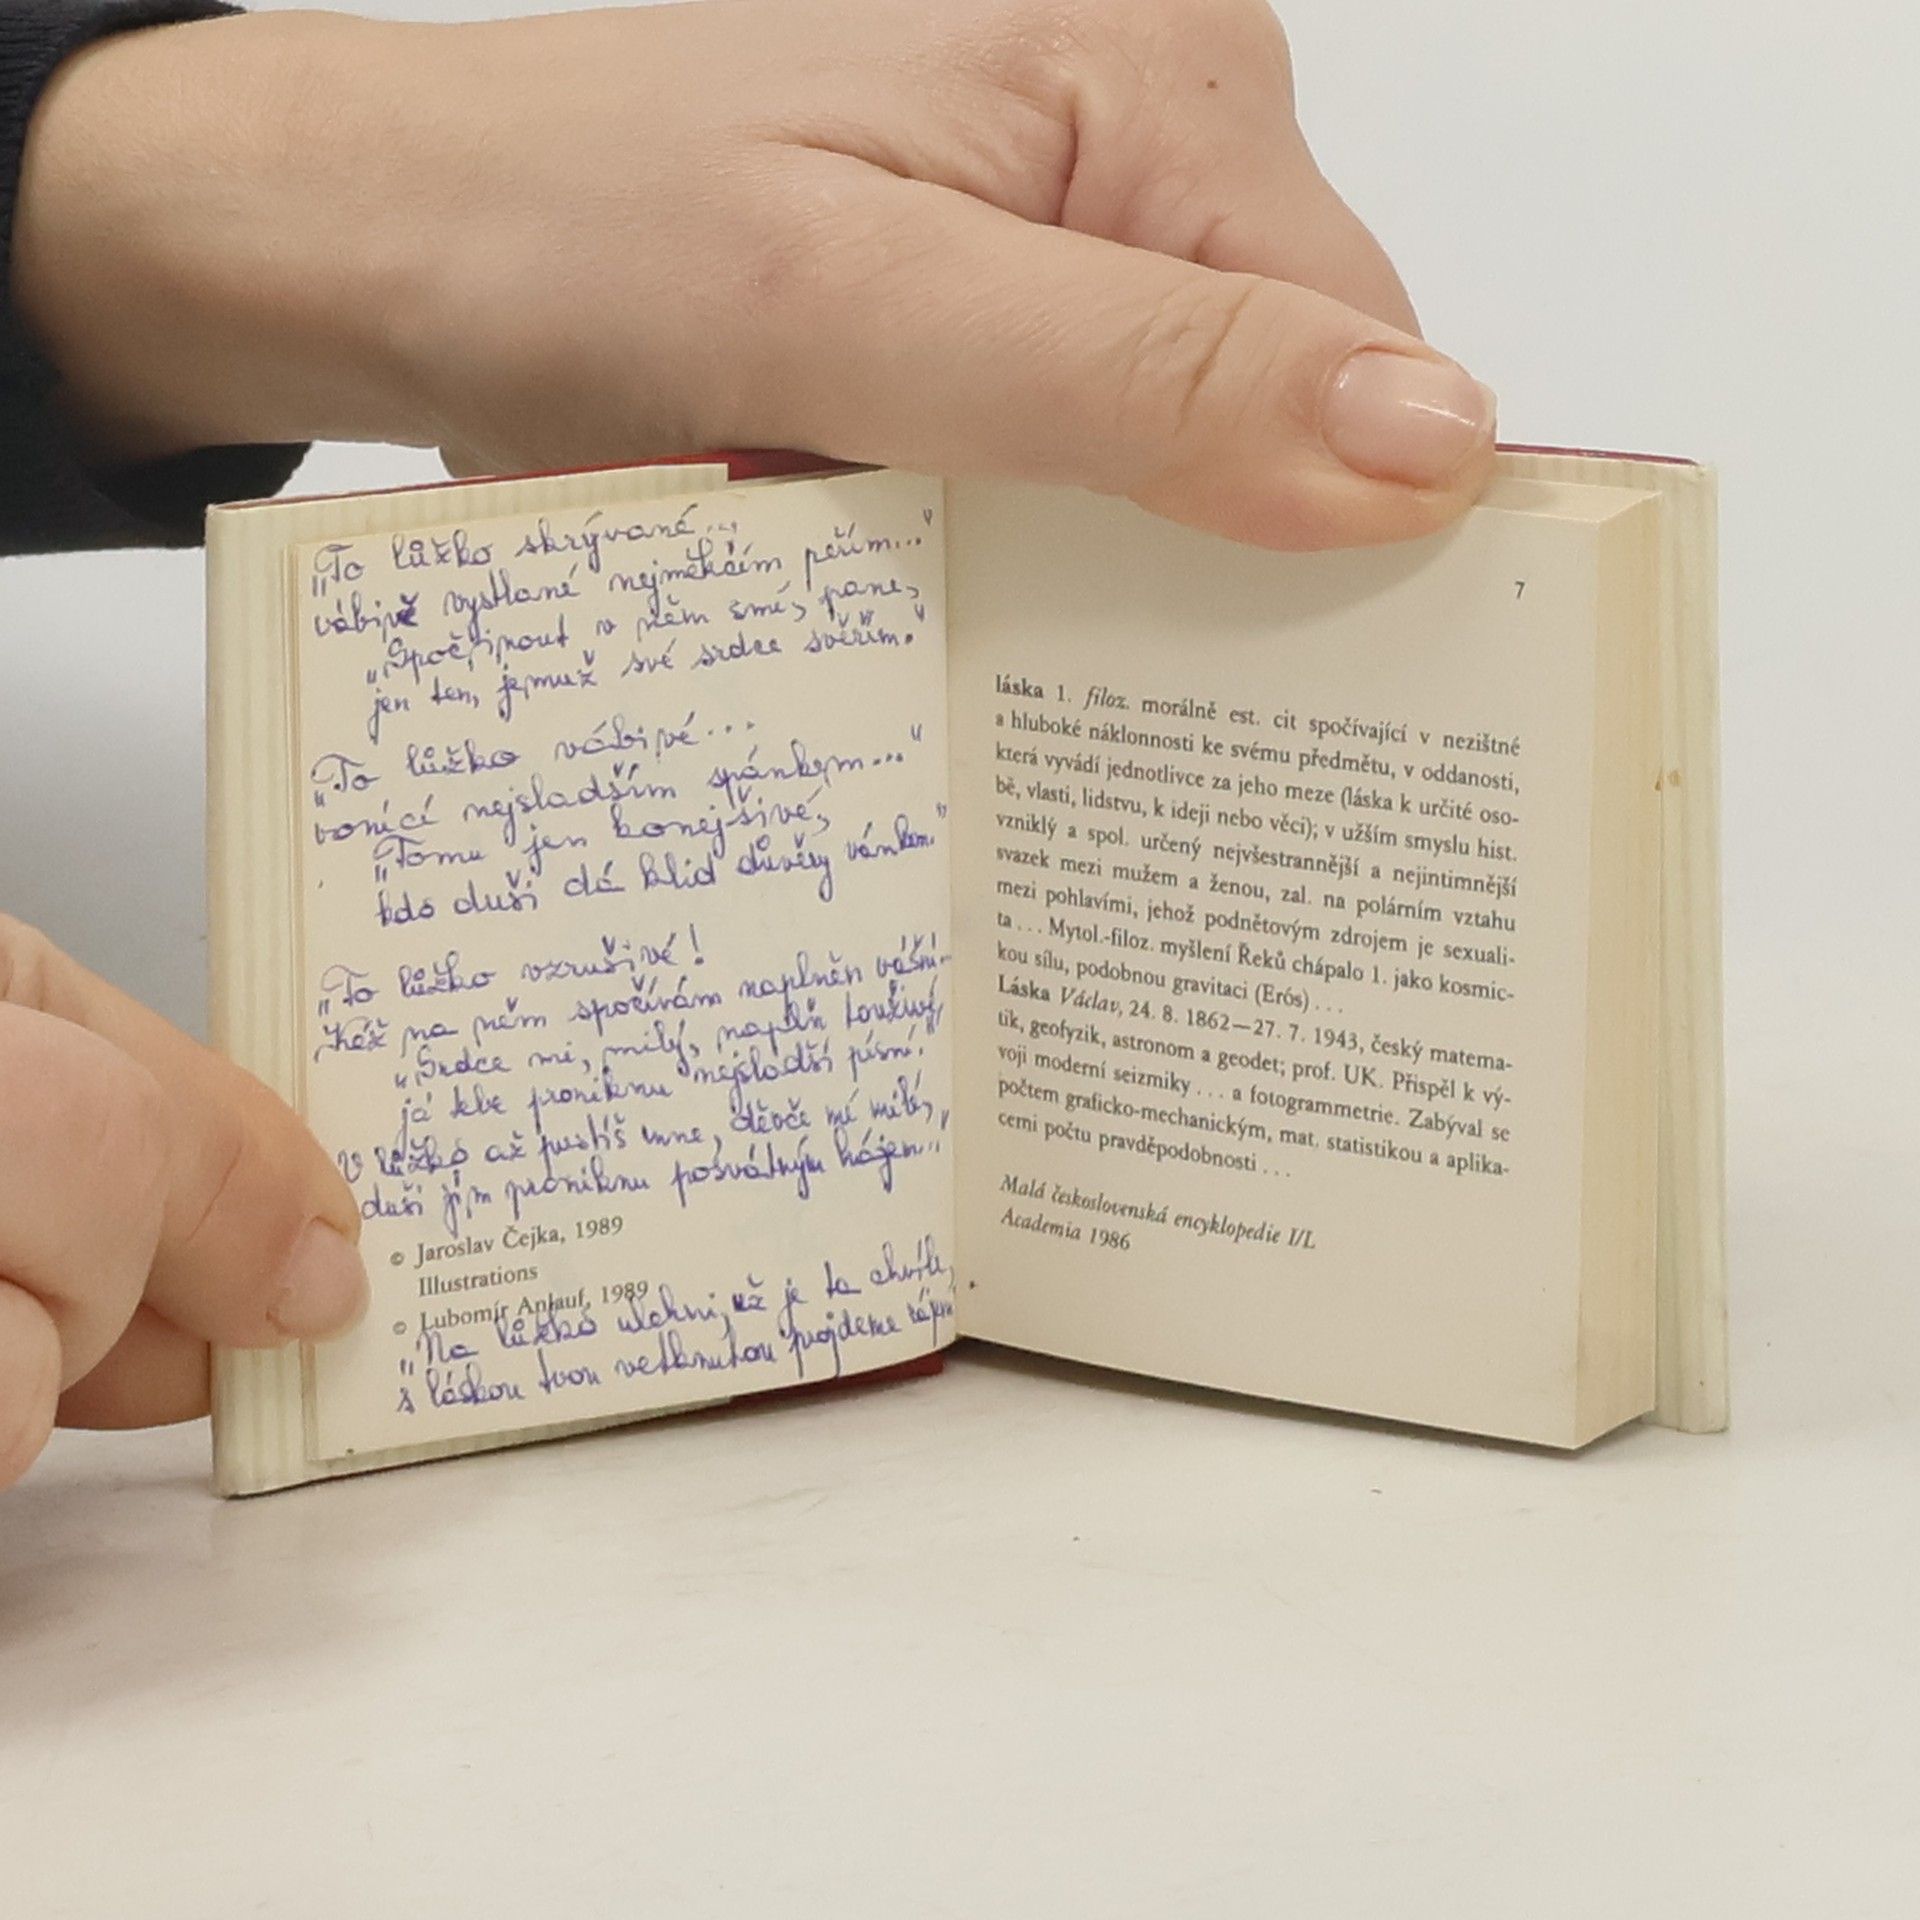 „To lůžko skrývané...
vábivě vystlané nejměkčím peřím..."
„Spočinout v něm smí, pane,
jen ten, jemuž své srdce svěřím."
„To lůžko vábivé...
vonící nejsladším spánkem..."
„Tomu jen konejšivé,
kdo duši dá klid důvěry vánkem."
„To lůžko vzrušivé!
Kéž na něm spočívám naplněn vášní.
„Srdce mi, milý, naplň touživý,
já tebe proniknu nejsladší písní."
V lůžko až pustíš mne, děvče mé milé,
duši jím proniknu posvátným hájem..."
© Jaroslav Čejka, 1989
Illustrations
© Lubomír Anlauf, 1989
„Na lůžko ulehni, už je ta chvíle,
s láskou tvou vetknutou projdeme
7
láska 1. filoz. morálně est. cit spočívající v nezištné
a hluboké náklonnosti ke svému předmětu, v oddanosti,
která vyvádí jednotlivce za jeho meze (láska k určité oso-
bě, vlasti, lidstvu, k ideji nebo věci); v užším smyslu hist.
vzniklý a spol. určený nejvšestrannější a nejintimnější
svazek mezi mužem a ženou, zal. na polárním vztahu
mezi pohlavími, jehož podnětovým zdrojem je sexuali-
ta . . . Mytol.-filoz. myšlení Řeků chápalo l. jako kosmic-
kou sílu, podobnou gravitaci (Erós) . . .
Láska Václav, 24. 8. 1862—27. 7. 1943, český matema-
tik, geofyzik, astronom a geodet; prof. UK. Přispěl k vý-
voji moderní seizmiky . . . a fotogrammetrie. Zabýval se
počtem graficko-mechanickým, mat. statistikou a aplika-
cemi počtu pravděpodobnosti . . .
Malá československá encyklopedie I/L
Academia 1986